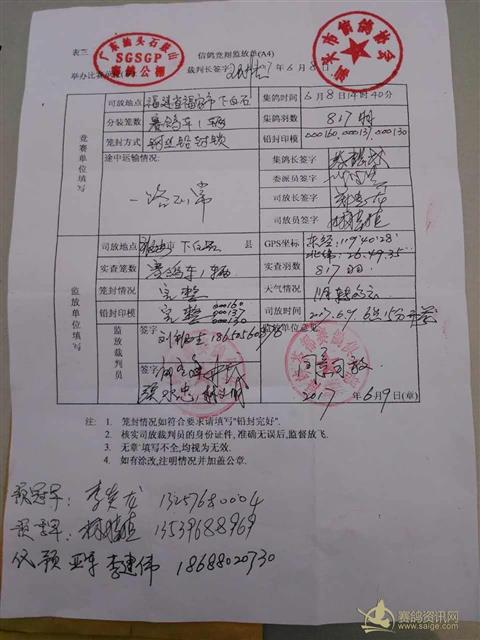 表三
信鸽竞翔监放单(A4)
广东汕头石鼓山
SGSGP
赛鸽公棚
汕头市信鸽协会
举办比赛单位(章)
裁判长签字
2017年6月8日
竞赛单位填写
司放地点 福建省福安市下白石
集鸽时间 6月8日14时40分
分装笼数 赛鸽车1辆
集鸽羽数 817羽
笼封方式 钢丝铅封锁
铅封印模 000160.000137.000130
途中运输情况:
一路正常
集鸽长签字
委派员签字
司放长签字
司放员签字
监放单位填写
司放地点 下白石 县
GPS坐标 东经:119°40'28"
北纬:26.49.35"
实查笼数 赛鸽车1辆
实查羽数 817羽
笼封情况 完整
天气情况
铅封印模 完整 000160
000137
000130
司放时间 2017.6.9 6时15分开笼
监放裁判员
签字
签字
监放单位意见
同意司放
2017年6月9日(章)
注: 1. 笼封情况如符合要求请填写"铅封完好"。
2. 核实司放裁判员的身份证件,准确无误后,监督放飞。
3. 无章填写不全,均视为无效。
4. 如有涂改,注明情况并加盖公章。
预冠军: 李炎龙 13257680004
13539688969
亚军 李建伟 18688020730
赛鸽资讯网
www.saige.com